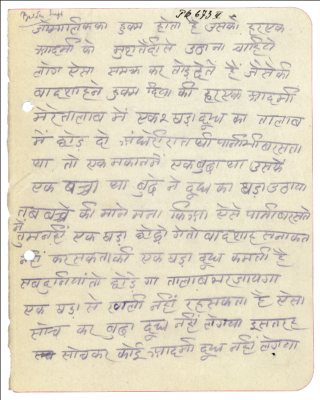 PG 673 H
जो मालिक का हुक्म होता है उसको हर एक
आदमी को मुस्तैदी से उठाना चाहिये
लोग ऐसा समझ कर तोड़ देते हैं जैसे की
बादशाह ने हुक्म दिया की हर एक आदमी
मेरे तालाब में एक २ घड़ा दूध का तालाब
में छोड़ दो अंधेरी रात थी पानी भी बरसता
था तो एक मकान में एक बुढ्ढा था उसके
एक बच्चा था बुढ्ढे ने दूध का घड़ा उठाया
तब बच्चे की मा ने मना किआ ऐसे पानी बरसते
में तुम नहीं एक घड़ा छोड़ो गे तो बादशाह
नहीं कर सकता की एक घड़ा दूध कमती है
सब दुनियां तो छोड़े गा तालाब भर जायगा
एक घड़ा से खाली नहीं रह सकता है ऐसा
सोच कर बुढ्ढा दूध नहीं ले गया इस तरह
सोच कर कोई आदमी दूध नहीं ले गया